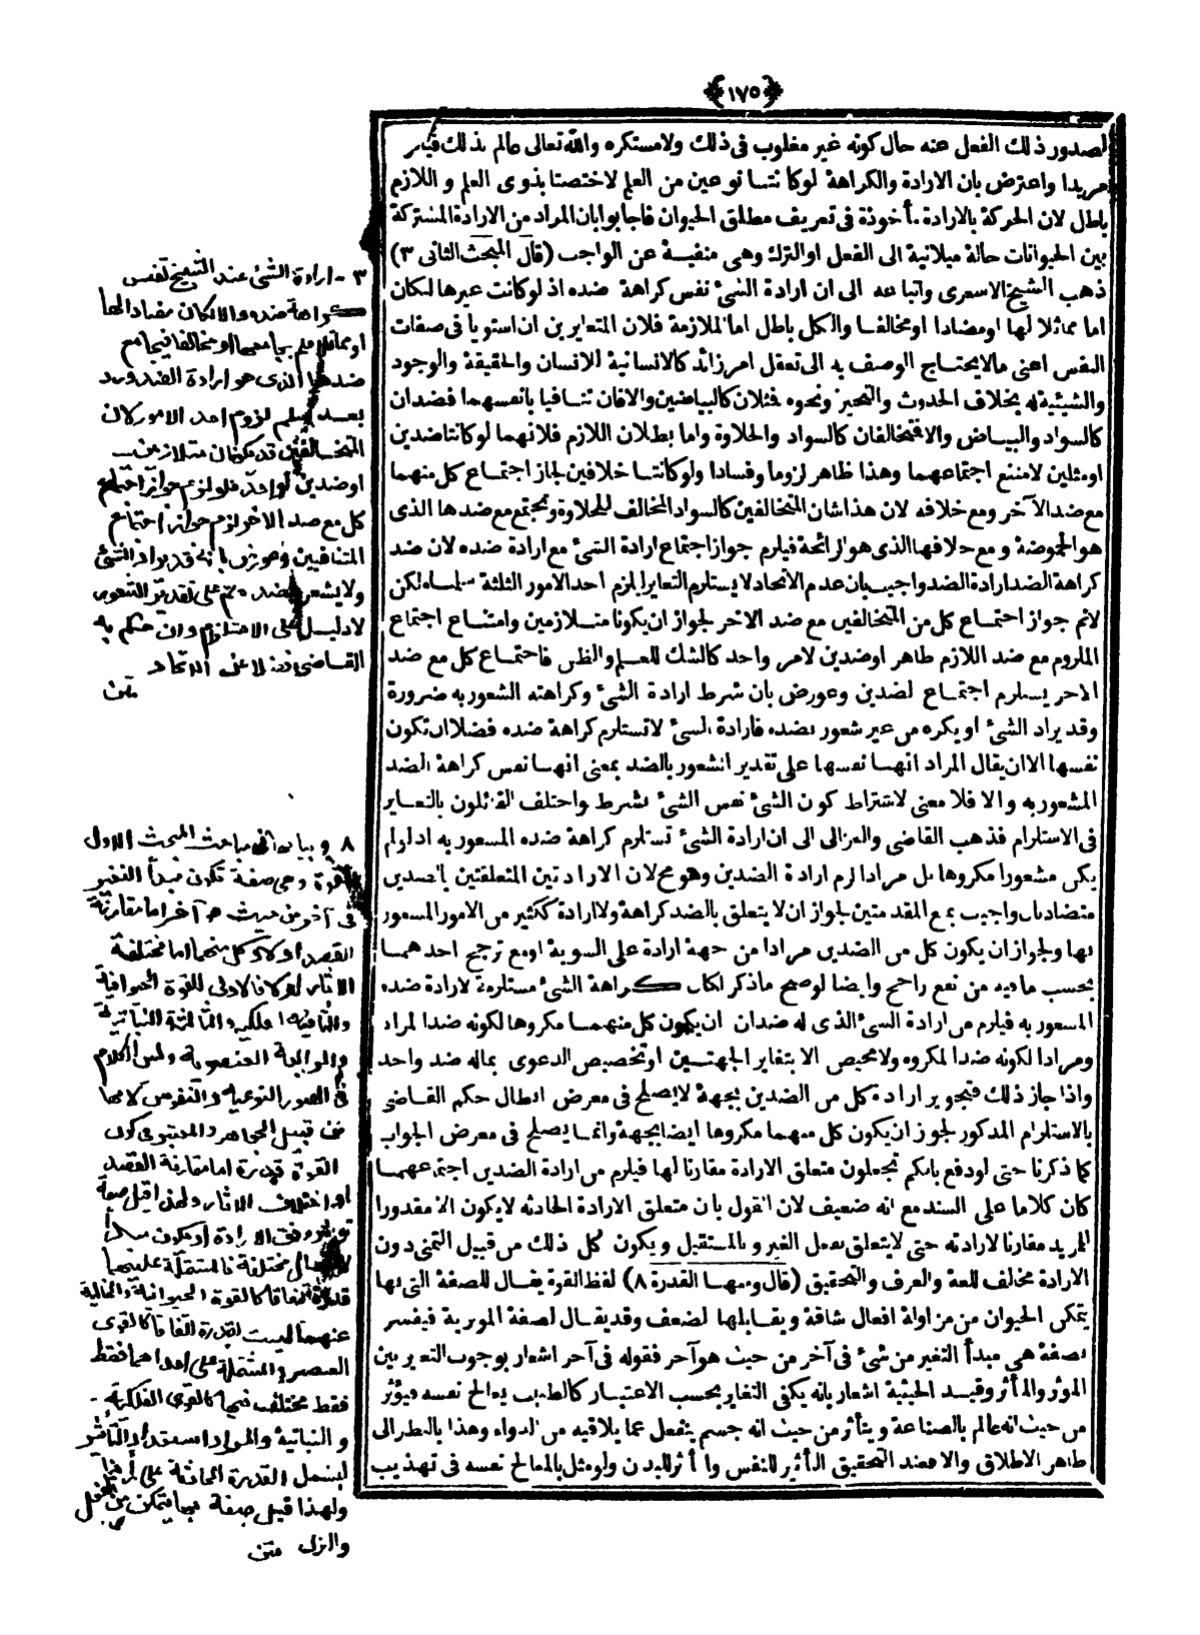 ﴿١٧٥﴾
لصدور ذلك الفعل عنه حال كونه غير مغلوب فى ذلك ولا مستكره والله تعالى عالم بذلك
مريدا واعترض بان الارادة والكراهة لو كانتا نوعين من العلم لاختصتا بذوى العلم و اللازم
باطل لان الحركة بالارادة مأخوذة فى تعريف مطلق الحيوان فاجابوا بان المراد من الارادة المشتركة
بين الحيوانات حالة ميلانية الى الفعل او الترك وهى منفية عن الواجب (قال المبحث الثانى ٣)
ذهب الشيخ الاشعرى واتباعه الى ان ارادة الشئ نفس كراهة ضده اذ لو كانت غيرها لكان
اما مماثلا لها او مضادا او مخالفا والكل باطل اما الملازمة فلان المتغايرين ان استويا فى صفات
النفس اعنى مالا يحتاج الوصف به الى تعقل امر زائد كالانسانية للانسان والحقيقة والوجود
والشيئية له بخلاف الحدوث والتحيز ونحوه فمثلان كالبياضين والا فان تنافيا بانفسهما فضدان
كالسواد والبياض والا فمتخالفان كالسواد والحلاوة واما بطلان اللازم فلانهما لو كانتا ضدين
او مثلين لامتنع اجتماعهما وهذا ظاهر لزوما وفسادا ولو كانتا خلافين لجاز اجتماع كل منهما
مع ضد الآخر ومع خلافه لان هذا شان المتخالفين كالسواد المخالف للحلاوة يجتمع مع ضدها الذى
هو الحموضة و مع خلافها الذى هو الرائحة فيلزم جواز اجتماع ارادة الشئ مع ارادة ضده لان ضد
كراهة الضد ارادة الضد واجيب بان عدم الاتحاد لا يستلزم التغاير ليلزم احد الامور الثلثة سلمناه لكن
لانم جواز اجتماع كل من المتخالفين مع ضد الاخر لجواز ان يكونا متلازمين وامتناع اجتماع
الملزوم مع ضد اللازم ظاهر او ضدين لامر واحد كالشك للعلم والظن فاجتماع كل مع ضد
الاخر يستلزم اجتماع الضدين وعورض بان شرط ارادة الشئ وكراهته الشعور به ضرورة
وقد يراد الشئ او يكره من غير شعور بضده فارادة الشئ لا تستلزم كراهة ضده فضلا ان تكون
نفسها الا ان يقال المراد انها نفسها على تقدير الشعور بالضد بمعنى انها نفس كراهة الضد
المشعور به والا فلا معنى لاشتراط كون الشئ نفس الشئ بشرط واختلف القائلون بالتغاير
فى الاستلزام فذهب القاضى والغزالى الى ان ارادة الشئ تستلزم كراهة ضده المشعور به اذ لو لم
يكن مشعورا مكروها بل مرادا لزم ارادة الضدين وهو مح لان الارادتين المتعلقتين بالضدين
متضادتان واجيب بمنع المقدمتين لجواز ان لا يتعلق بالضد كراهة ولا ارادة ككثير من الامور المشعور
بها ولجواز ان يكون كل من الضدين مرادا من جهة ارادة على السوية او مع ترجيح احدهما
بحسب ما فيه من نفع راجح وايضا لو صح ما ذكر لكان كراهة الشئ مستلزمة لارادة ضده
المشعور به فيلزم من ارادة الشئ الذى له ضدان ان يكون كل منهما مكروها لكونه ضدا لمراد
ومرادا لكونه ضدا لمكروه ولا محيص الا بتغاير الجهتين او تخصيص الدعوى بماله ضد واحد
واذا جاز ذلك فتجويز ارادة كل من الضدين بجهة لا يصلح فى معرض ابطال حكم القاضى
بالاستلزام المذكور لجواز ان يكون كل منهما مكروها ايضا بجهة وانما يصلح فى معرض الجواب
كما ذكرنا حتى لو دفع بانكم تجعلون متعلق الارادة مقارنا لها فيلزم من ارادة الضدين اجتماعهما
كان كلاما على السند مع انه ضعيف لان القول بان متعلق الارادة الحادثه لا يكون الا مقدورا
للمريد مقارنا لارادته حتى لا يتعلق بفعل الغير و بالمستقبل و يكون كل ذلك من قبيل التمنى دون
الارادة مخالف للغة والعرف والتحقيق (قال ومنهما القدرة ٨) لفظ القوة يقال للصفة التى بها
يتمكن الحيوان من مزاولة افعال شاقة ويقابلها الضعف وقد يقال لصفة المؤثرية فيفسر
بصفة هى مبدأ التغير من شئ فى آخر من حيث هو آخر فقوله فى آخر اشعار بوجوب التغاير بين
المؤثر والمتأثر وقيد الحيثية اشعار بانه يكفى التغاير بحسب الاعتبار كالطبيب يعالج نفسه فيؤثر
من حيث انه عالم بالصناعة و يتأثر من حيث انه جسم ينفعل عما يلاقيه من الدواء وهذا بالنظر الى
ظاهر الاطلاق والا فعند التحقيق التأثير للنفس والتأثر للبدن ولو مثل بالمعالج نفسه فى تهذيب
٣ - ارادة الشئ عند الشيخ نفس
كراهة ضده والا لكان مضادا لها
او مماثلا فلم يجامعها او مخالفا فيجامع
ضدها الذى هو ارادة الضد ورد
بعد تسلم لزوم احد الامور كان
المتخالفين قد يكونان متلازمين
او ضدين لواحد فلو لزم جواز اجتماع
كل مع ضد الاخر لزم جواز اجتماع
المتنافيين وعورض بانه قد يراد الشئ
ولا يشعر بضده نعم على تقدير الشعور
لا دليل على الاستلزام وان حكم به
القاضى فضلا عن الاتحاد
متن
٨ و بيانه فى مباحث المبحث الاول
القوة وهى صفة تكون مبدأ التغير
فى آخر من حيث هو آخر اما مقارنة
القصد او لا وكل منهما اما مختلفة
الاثار او لا فالاولى للقوة الحيوانية
والثانية الفلكية والثالثة النباتية
والرابعة العنصرية وليس الكلام
فى الصور النوعية والنفوس لانها
من قبيل الجواهر والمعتبر فى كون
القوة قدرة اما مقارنة القصد
او اختلاف الاثار ولهذا قيل صفة
تؤثر وفق الارادة او يكون مبدأ
لافعال مختلفة فالمشتملة عليهما
قدرة اتفاقا كالقوة الحيوانية والخالية
عنهما ليست بقدرة اتفاقا كالقوى
العنصرية والمشتملة على احداهما فقط
فقط مختلف فيها كالقوى الفلكية
و النباتية والمراد استعداد التأثير
ليشمل القدرة الحادثة على رأينا
ولهذا قيل صفة بها يتمكن من الفعل
والترك متن